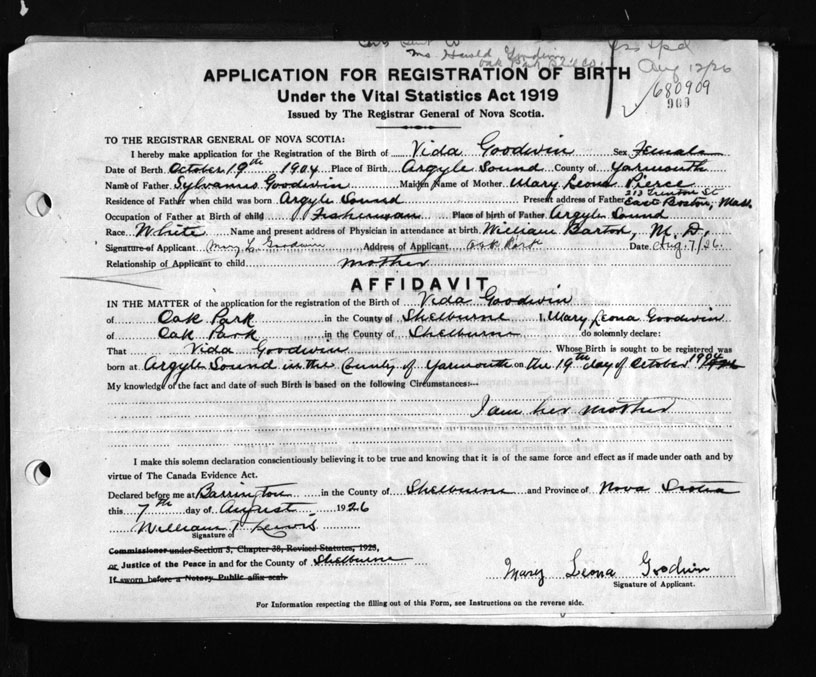 Mrs Harold Goodwin
Aug 12/26
680909
909
APPLICATION FOR REGISTRATION OF BIRTH
Under the Vital Statistics Act 1919
Issued by The Registrar General of Nova Scotia.
TO THE REGISTRAR GENERAL OF NOVA SCOTIA:
I hereby make application for the Registration of the Birth of Vida Goodwin Sex Female
Date of Birth October 19th 1904 Place of Birth Argyle Sound County of Yarmouth
Name of Father Sylvanus Goodwin Maiden Name of Mother Mary Leona Pierce
Residence of Father when child was born Argyle Sound Present address of Father 213 St East Boston, Mass
Occupation of Father at Birth of child Fisherman Place of birth of Father Argyle Sound
Race White Name and present address of Physician in attendance at birth William Barton, M.D.
Signature of Applicant Mary L Goodwin Address of Applicant Oak Park Date Aug. 7/26.
Relationship of Applicant to child mother
AFFIDAVIT
IN THE MATTER of the application for the registration of the Birth of Vida Goodwin
of Oak Park in the County of Shelburne I, Mary Leona Goodwin
of Oak Park in the County of Shelburne do solemnly declare:
That Vida Goodwin Whose Birth is sought to be registered was
born at Argyle Sound in the County of Yarmouth on the 19th day of October 1904
My knowledge of the fact and date of such Birth is based on the following Circumstances:—
I am her mother
I make this solemn declaration conscientiously believing it to be true and knowing that it is of the same force and effect as if made under oath and by
virtue of The Canada Evidence Act.
Declared before me at Barrington in the County of Shelburne and Province of Nova Scotia
this 7th day of August 1926
William T Lewis
Signature of
Commissioner under Section 3, Chapter 38, Revised Statutes, 1923,
or Justice of the Peace in and for the County of Shelburne
If sworn before a Notary Public affix seal
Mary Leona Goodwin
Signature of Applicant.
For Information respecting the filling out of this Form, see Instructions on the reverse side.